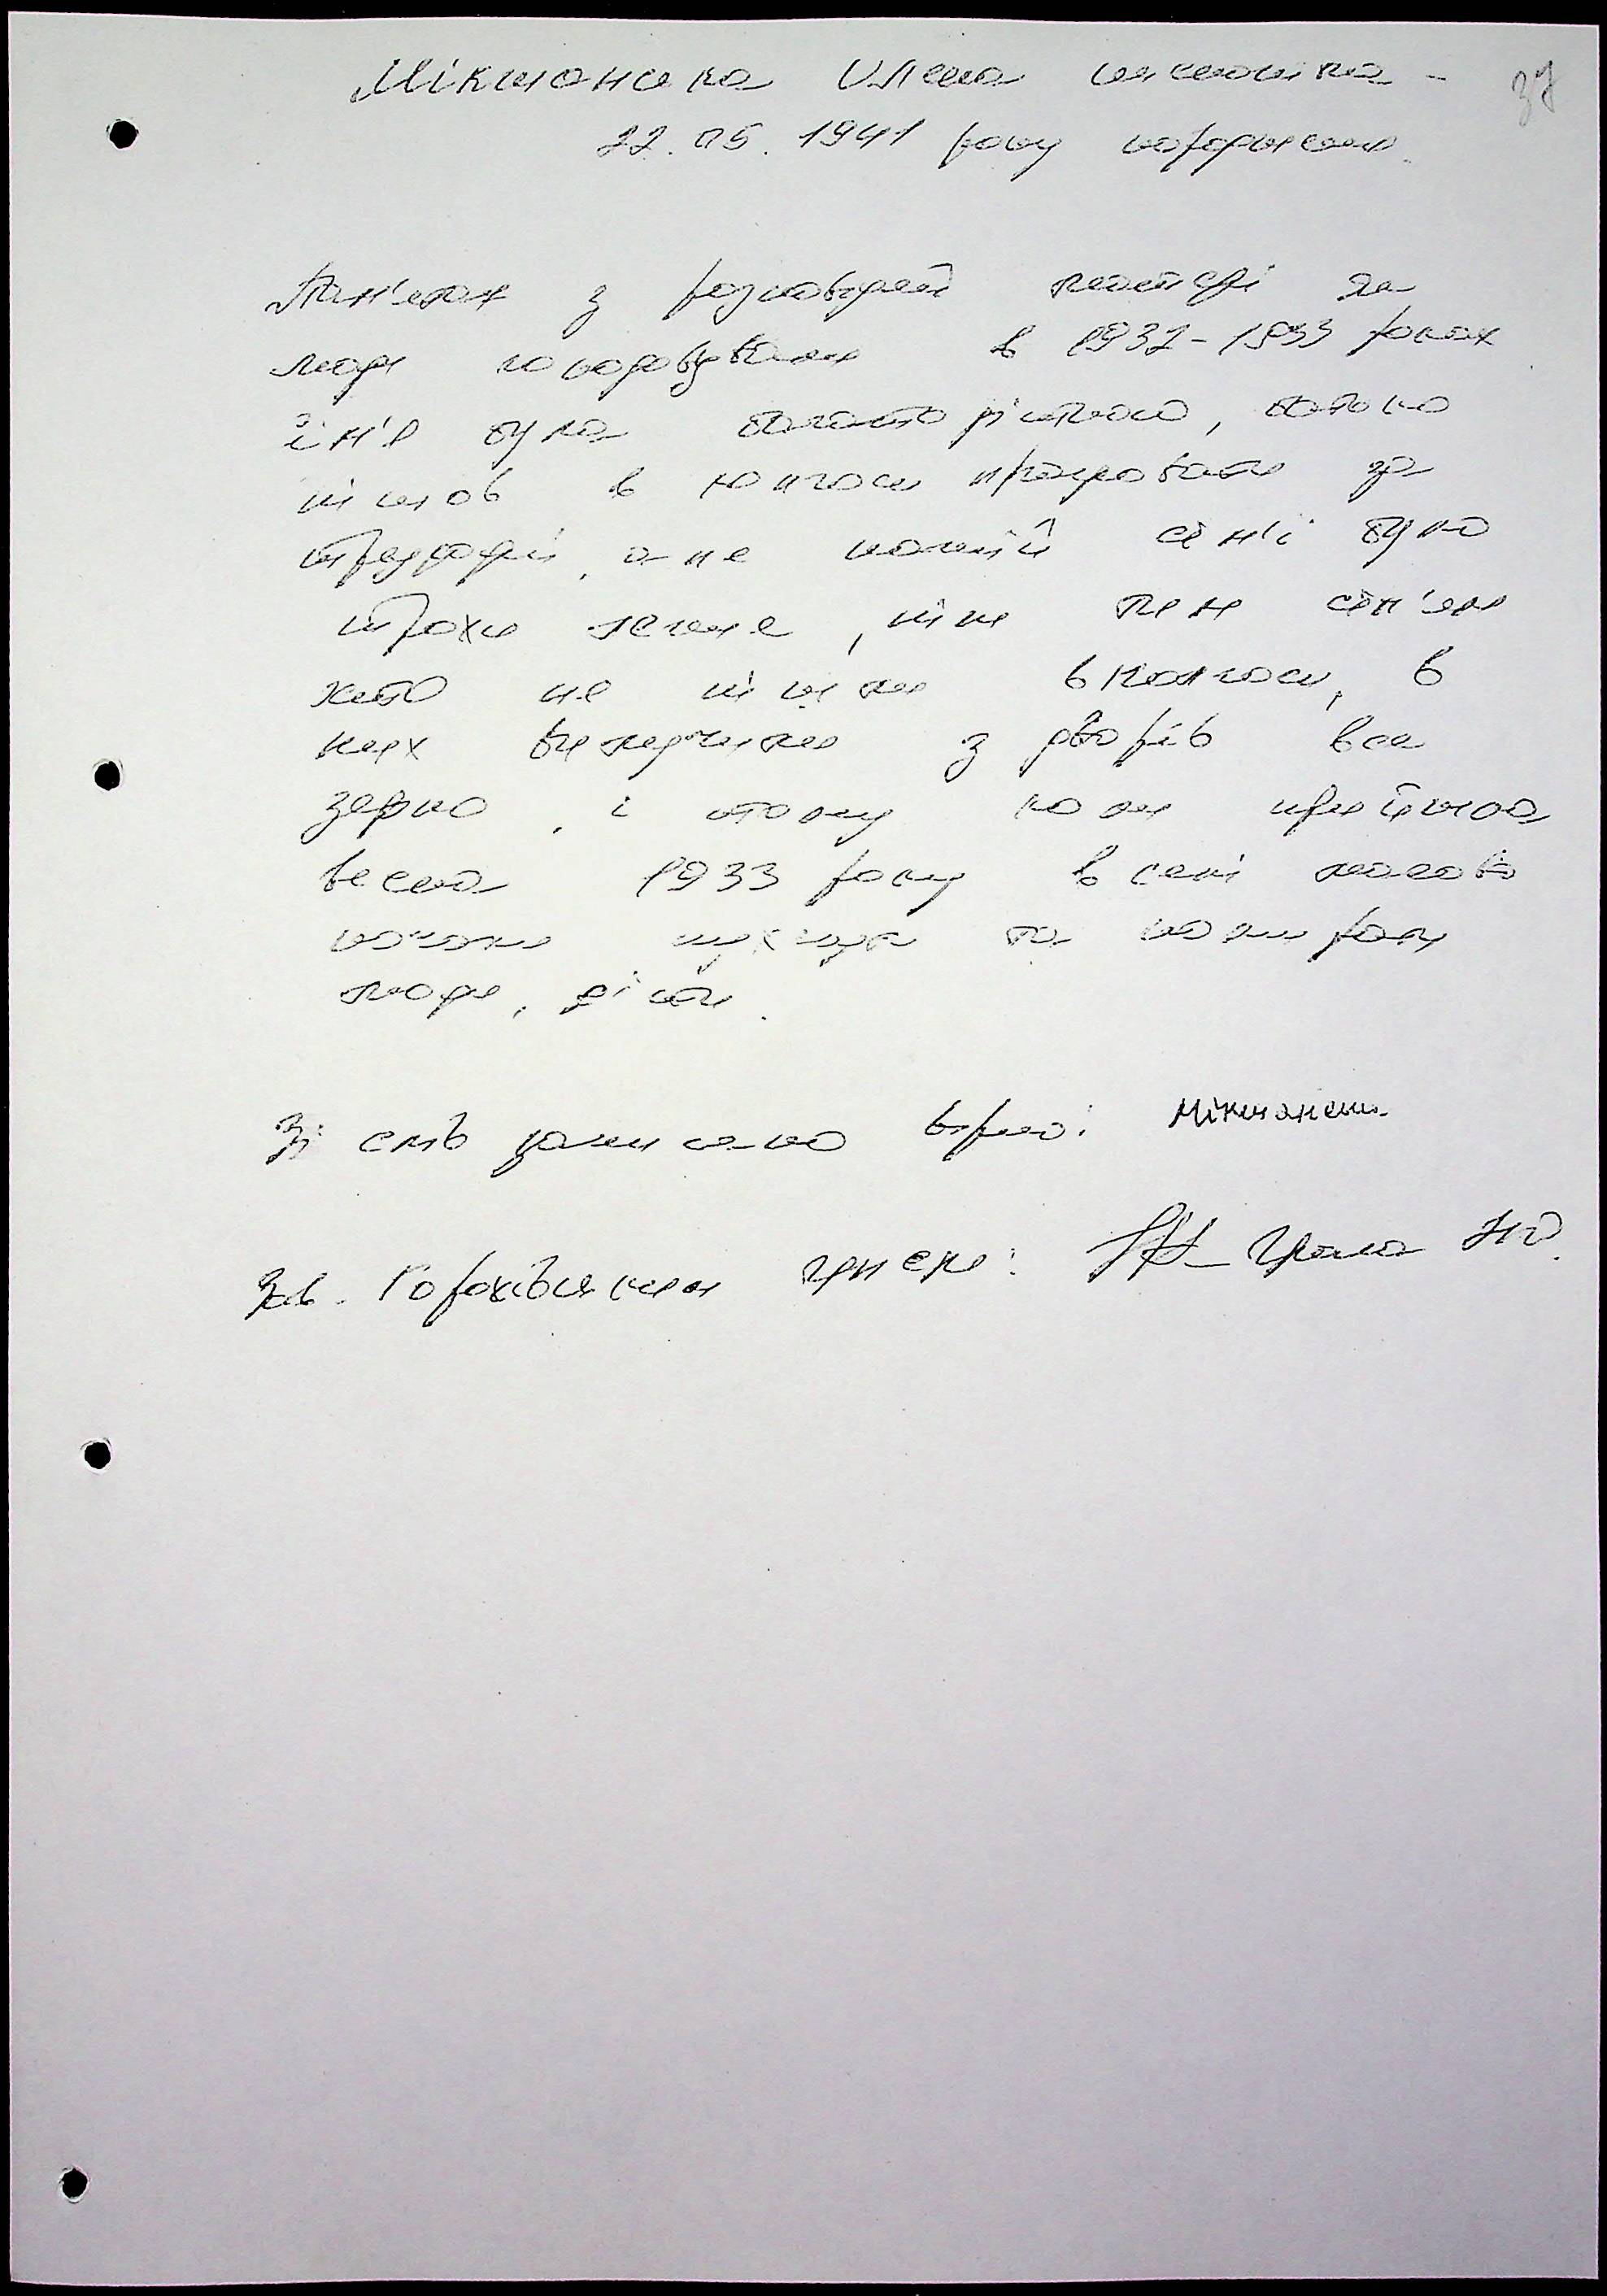 37
Мікшанська Олена
22.05.1941 року народження.
Пам'ятаю з розповідей матері як
люди голодували в 1932-1933 роках
сім'я була багатодітною, батько
пішов в колгосп працювати за
трудодні, але нашій сім'ї було
трохи легше, ніж тим сім'ям
хто не пішли в колгосп, в
них вилучили з дворів все
зерно, і тому коли прийшла
весна 1933 року в селі масово
почали пухнути та помирати
люди, діти.
Зі слів записано вірно: Мікшанська
Зав. Горохівським